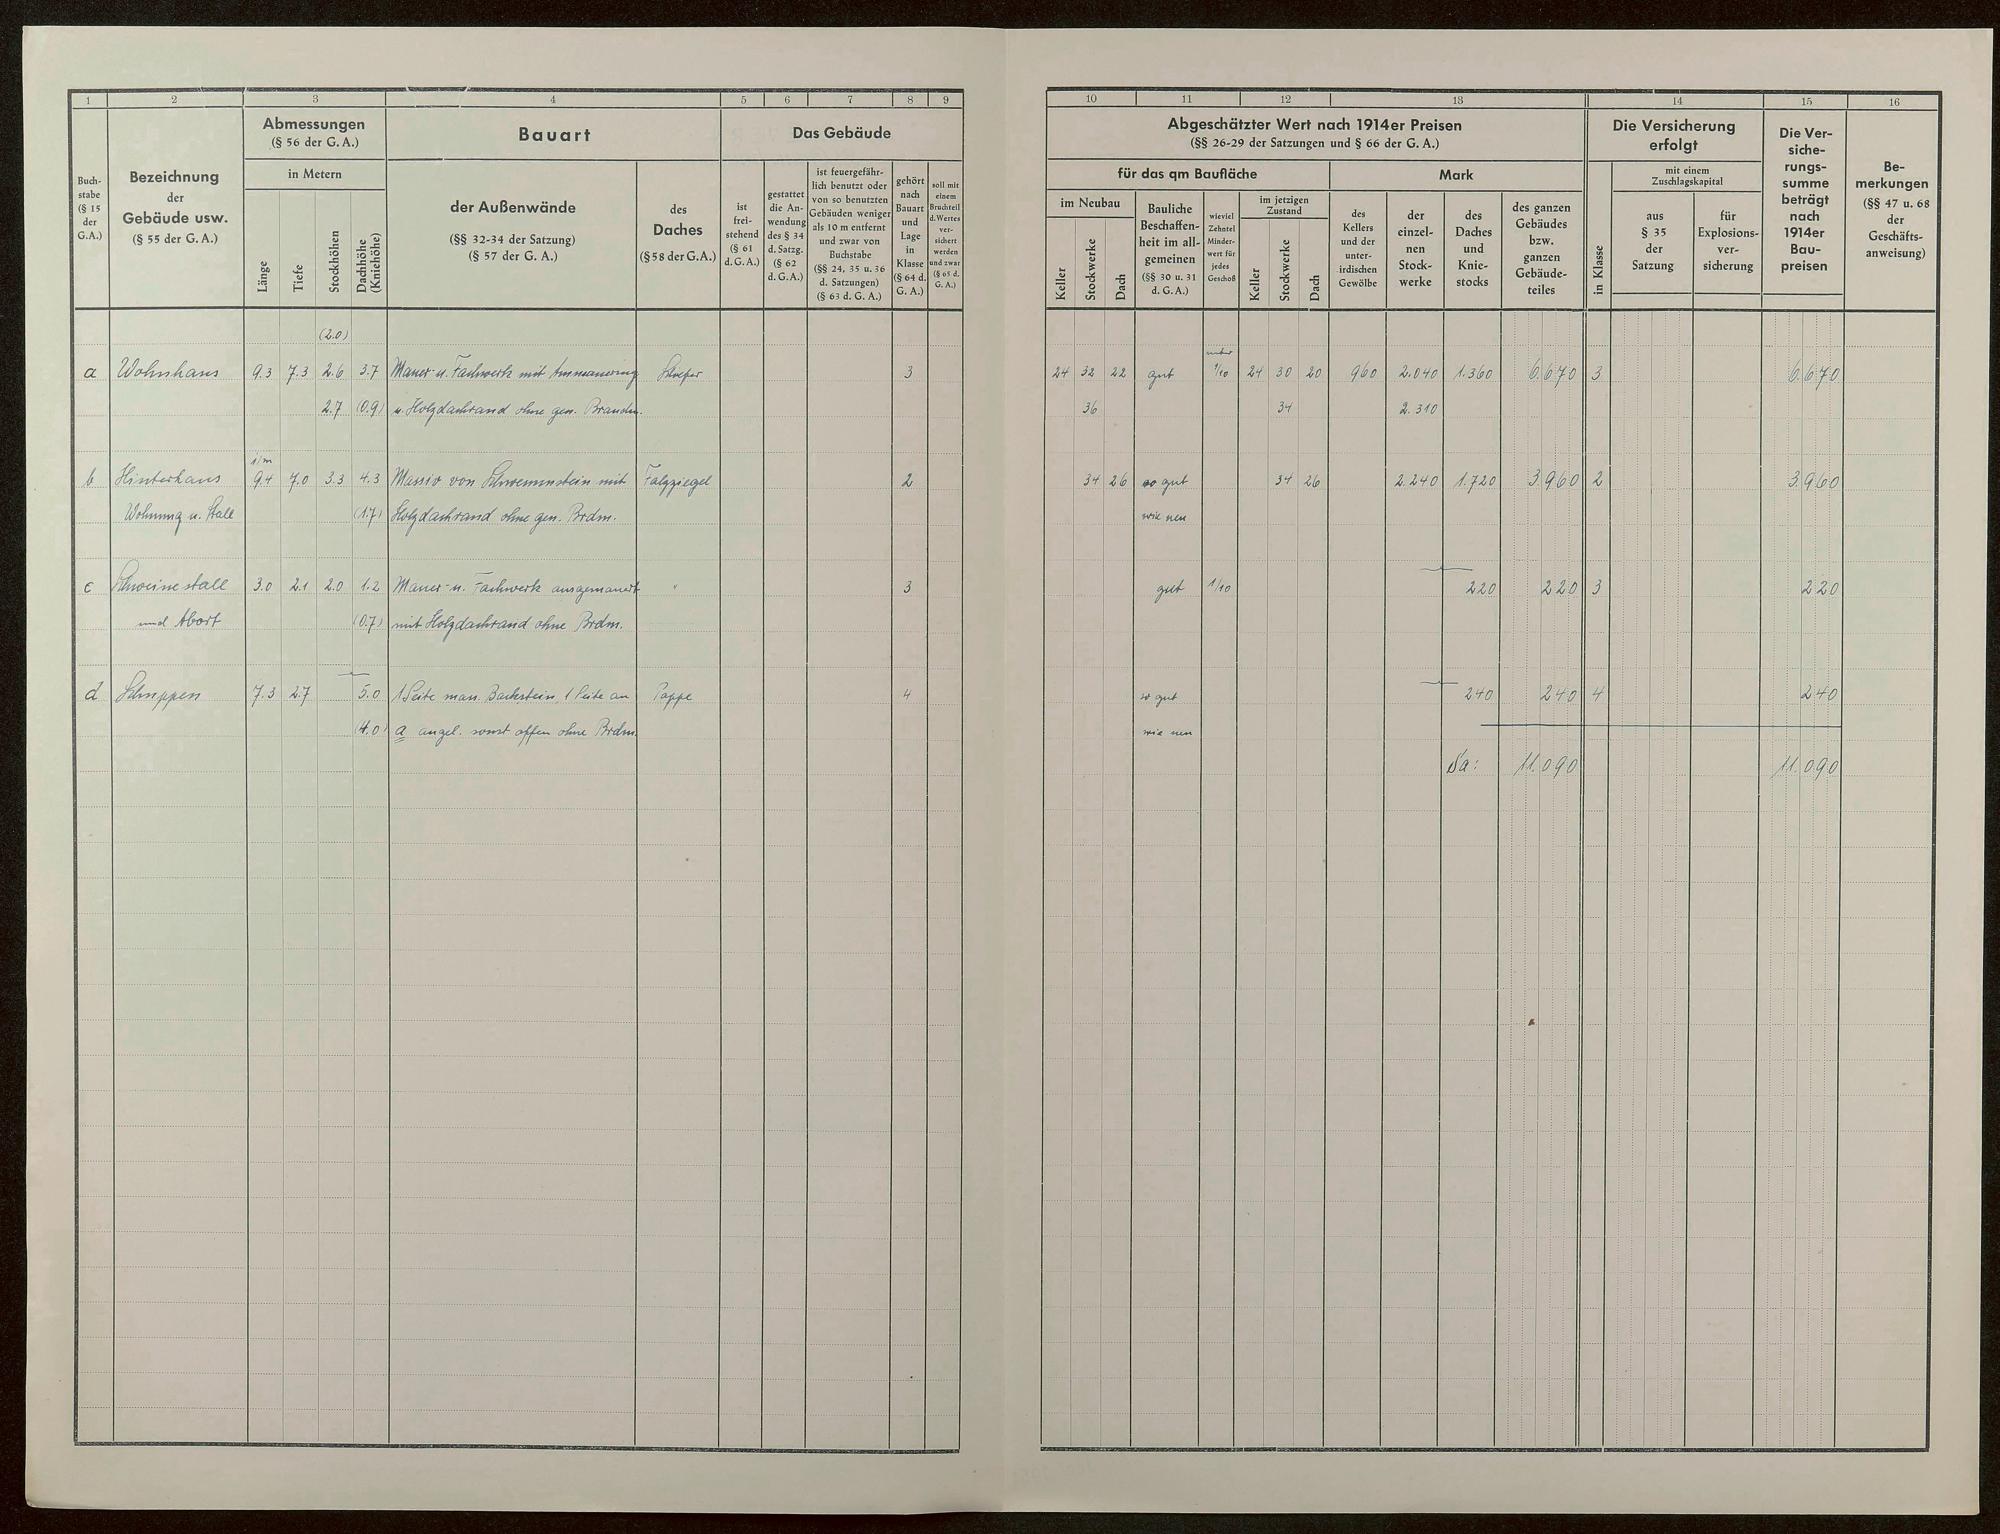 1 2 3 4 5 6 7 8 9
Abmessungen
(§ 56 der G. A.)
in Metern
Bauart
Das Gebäude
Buch-
stabe
(§ 15
der
G.A.)
Bezeichnung
der
Gebäude usw.
(§ 55 der G. A.)
Länge
Tiefe
Stockhöhen
Dachhöhe
(Kniehöhe)
der Außenwände
(§§ 32-34 der Satzung)
(§ 57 der G. A.)
des
Daches
(§ 58 der G.A.)
ist
frei-
stehend
(§ 61
d. G. A.)
gestattet
die An-
wendung
des § 34
d. Satzg.
(§ 62
d. G. A.)
ist feuergefähr-
lich benutzt oder
von so benutzten
Gebäuden weniger
als 10 m entfernt
und zwar von
Buchstabe
(§§ 24, 35 u. 36
d. Satzungen)
(§ 63 d. G. A.)
gehört
nach
Bauart
und
Lage
in
Klasse
(§ 64 d.
G. A.)
soll mit
einem
Bruchteil
d. Wertes
ver-
sichert
werden
und zwar
(§ 65 d.
G. A.)
(2.0)
a Wohnhaus 9.3 7.3 2.6 3.7 Mauer- u. Fachwerk mit Ammauerung Schiefer 3
2.7 (0.9) u. Holzdachrand ohne gen. Brandm.
i/m
b Hinterhaus 9.4 7.0 3.3 4.3 Massiv von Schwemmstein mit Falzziegel 2
Wohnung u. Stall (1.7) Holzdachrand ohne gen. Brdm.
c Schweinestall 3.0 2.1 2.0 1.2 Mauer- u. Fachwerk ausgemauert " 3
und Abort (0.7) mit Holzdachrand ohne Brdm.
d Schuppen 7.3 2.7 5.0 1 Seite mass. Backstein, 1 Seite an Pappe 4
(4.0) a angel. sonst offen ohne Brdm.
10 11 12 13 14 15 16
Abgeschätzter Wert nach 1914er Preisen
(§§ 26-29 der Satzungen und § 66 der G. A.)
für das qm Baufläche
Mark
im Neubau
Keller
Stockwerke
Dach
Bauliche
Beschaffen-
heit im all-
gemeinen
(§§ 30 u. 31
d. G. A.)
wieviel
Zehntel
Minder-
wert für
jedes
Geschoß
im jetzigen
Zustand
Keller
Stockwerke
Dach
des
Kellers
und der
unter-
irdischen
Gewölbe
der
einzel-
nen
Stock-
werke
des
Daches
und
Knie-
stocks
des ganzen
Gebäudes
bzw.
ganzen
Gebäude-
teiles
Die Versicherung
erfolgt
in Klasse
mit einem
Zuschlagskapital
aus
§ 35
der
Satzung
für
Explosions-
ver-
sicherung
Die Ver-
siche-
rungs-
summe
beträgt
nach
1914er
Bau-
preisen
Be-
merkungen
(§§ 47 u. 68
der
Geschäfts-
anweisung)
unter
24 32 22 gut 1/10 24 30 20 960 2.040 1.360 6.670 3 6.670
36 34 2.310
34 26 so gut 34 26 2.240 1.720 3.960 2 3.960
wie neu
gut 1/10 220 220 3 220
so gut 240 240 4 240
wie neu
Sa: 11.090 11.090